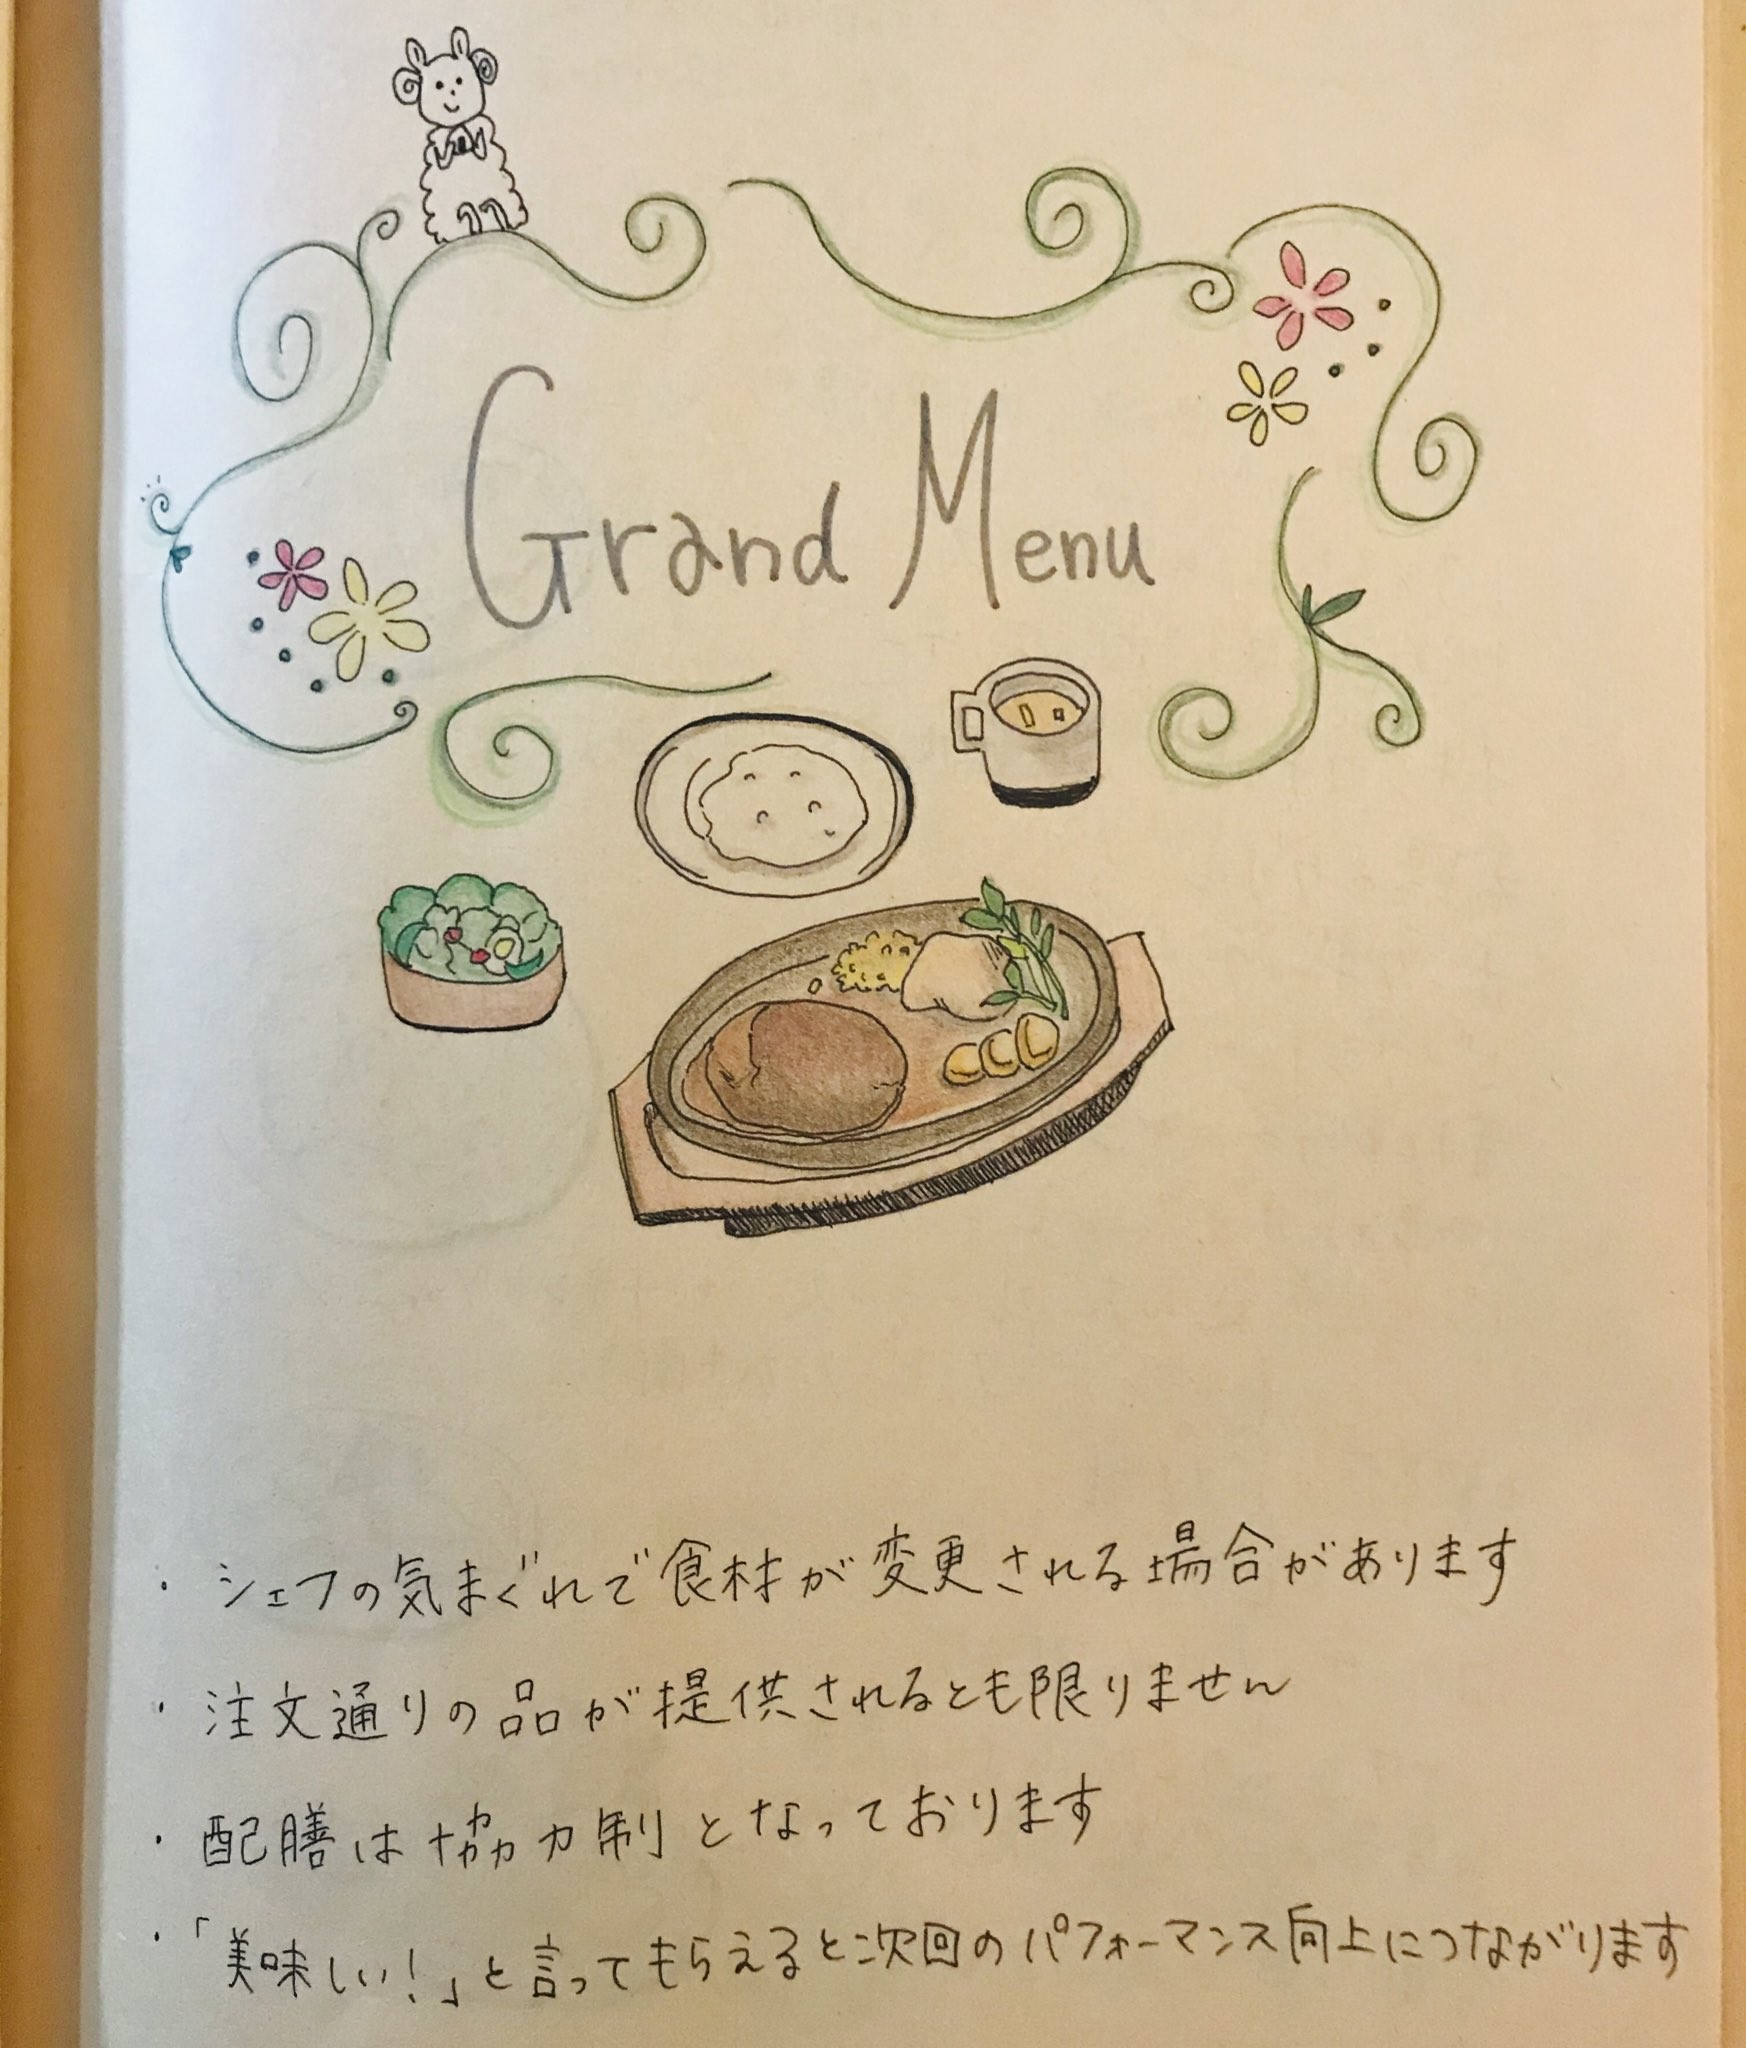 Grand Menu
・シェフの気まぐれで食材が変更される場合があります
・注文通りの品が提供されるとも限りません
・配膳は協力制となっております
・「美味しい！」と言ってもらえると次回のパフォーマンス向上につながります